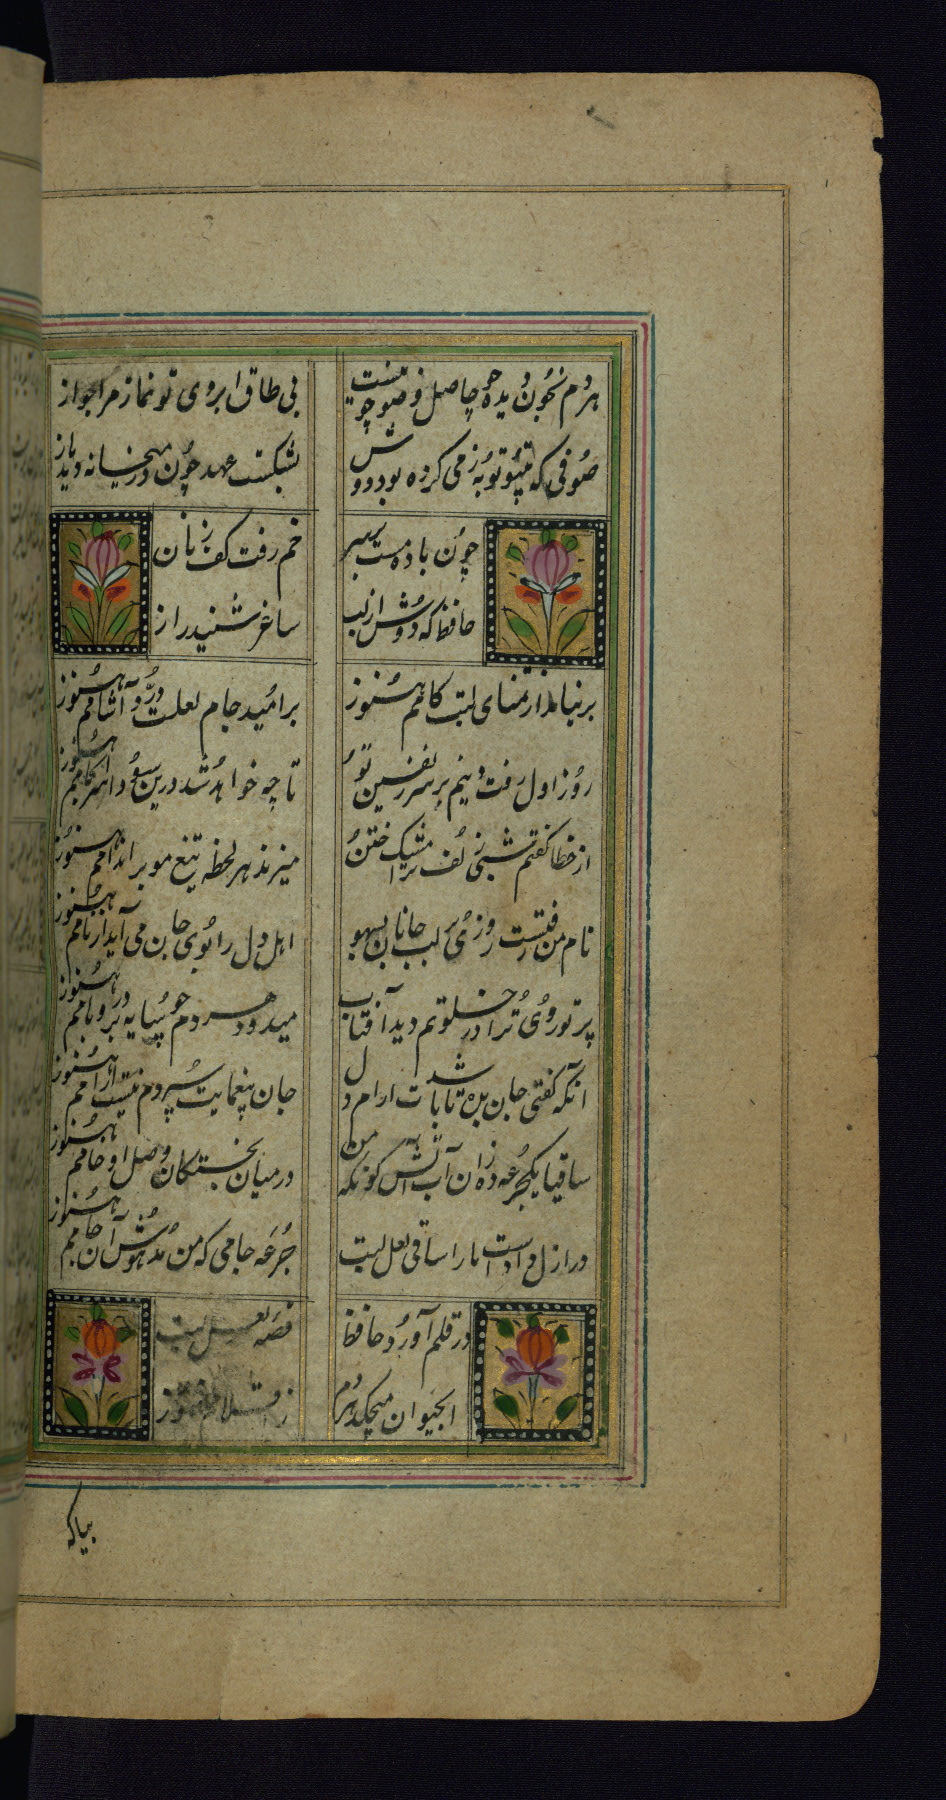 هردم بخون دیده چه حاصل وضو چو نیست
بی طاق ابروی تو نماز مرا جواز
صوفی که بیتو توبه ز می کرده بود دوش
بشکست عهد چون در میخانه دید باز
چون باده مست بر سر
خم رفت کف زنان
حافظ که دوش از لب
ساغر شنید راز
برنیامد از تمنای لبت کامم هنوز
بر امید جام لعلت دردی آشامم هنوز
روز اول رفت دینم بر سر زلفین تو
تا چه خواهد شد درین سودا سرانجامم هنوز
از خطا گفتم شبی زلف ترا مشک ختن
میزند هر لحظه تیغ مو بر اندامم هنوز
نام من رفتست روزی بر لب جانان بسهو
اهل دل را بوی جان می آید از نامم هنوز
پرتو روی ترا در خلوتم دید آفتاب
میدود هردم چو سایه بر در و بامم هنوز
آنکه گفتی جان بده تا باشدت آرام دل
جان بیغمایت سپردم نیست آرامم هنوز
ساقیا یکجرعه ده زان آب آتش گونکه من
در میان پختگان وصل او خامم هنوز
در ازل داده است ما را ساقی لعل لبت
جرعه جامی که من مدهوش آن جامم هنوز
در قلم آورد حافظ
قصه لعل لبت
آبحیوان میچکد هردم
ز اقلامم هنوز
بیا که